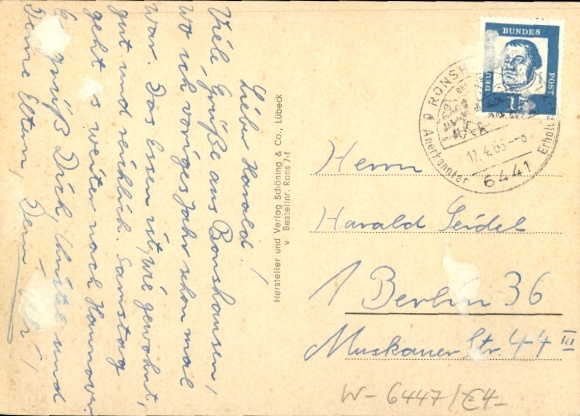 Lieber Harald!
Viele Grüße aus Ronshausen,
wo ich voriges Jahr schon mal
war. Das Essen ist, wie gewohnt,
gut und reichlich. Samstag
geht es weiter nach Hannover.
grüß Dich Christel und
Deine Eltern Dein
Hersteller und Verlag Schöning & Co., Lübeck
v Bestellnr. Rons 7-f
DEUTSCHE BUNDESPOST
15
RONSH
Anerkannter Erholun
17.4.63--8
6441
Herrn
Harald Seidel
1 Berlin 36
Muskauer Str. 44 III
W-6447/€4-